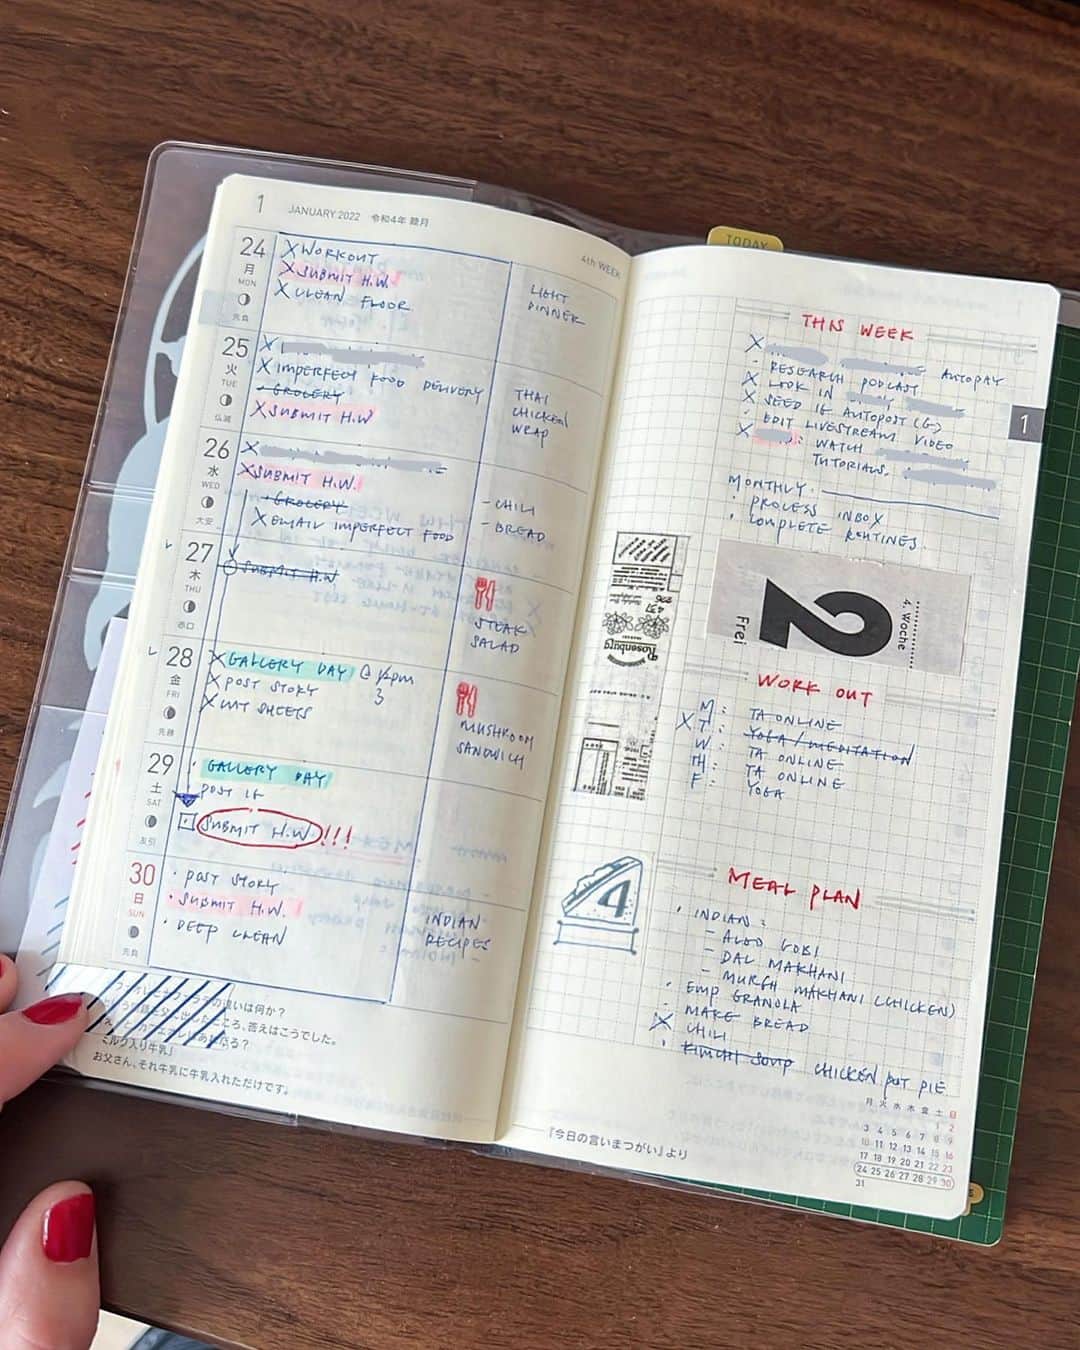 1 JANUARY 2022 令和4年 睦月
4th WEEK
24
月
MON
先負
X WORKOUT
X SUBMIT H.W.
X CLEAN FLOOR
LIGHT
DINNER
25
火
TUE
仏滅
X
X IMPERFECT FOOD DELIVERY
GROCERY
X SUBMIT H.W
THAI
CHICKEN
WRAP
26
水
WED
大安
X
X SUBMIT H.W.
GROCERY
X EMAIL IMPERFECT FOOD
- CHILI
- BREAD
27
木
THU
赤口
SUBMIT H.W
STEAK
SALAD
28
金
FRI
先勝
X GALLERY DAY @ 12pm
3
X POST STORY
X CUT SHEETS
MUSHROOM
SANDWICH
29
土
SAT
友引
· GALLERY DAY
POST IF
SUBMIT H.W. !!!
30
日
SUN
先負
· POST STORY
· SUBMIT H.W.
· DEEP CLEAN
INDIAN
RECIPES
違いは何か?
答えはこうでした。
ミルク入り牛乳」
お父さん、それ牛乳に牛乳入れただけです。
TODAY
THIS WEEK
X AUTOPAY
· RESEARCH PODCAST
X LOOK IN
X SEED IG AUTOPOST (G)
· EDIT LIVESTREAM VIDEO
X : WATCH
TUTORIALS.
1
MONTHLY.
· PROCESS INBOX
· COMPLETE ROUTINES.
2
4. Woche
Frei
Rosenburg
WORK OUT
M: TA ONLINE
X T: YOGA / MEDITATION
W: TA ONLINE
TH: TA ONLINE
F: YOGA
4
MEAL PLAN
· INDIAN:
- ALOO GOBI
- DAL MAKHANI
- MURGH MAKHANI (CHICKEN)
· EMP GRANOLA
· MAKE BREAD
X CHILI
· KIMCHI SOUP CHICKEN POT PIE
『今日の言いまつがい』より
月 火 水 木 金 土 日
1 2
3 4 5 6 7 8 9
10 11 12 13 14 15 16
17 18 19 20 21 22 23
24 25 26 27 28 29 30
31